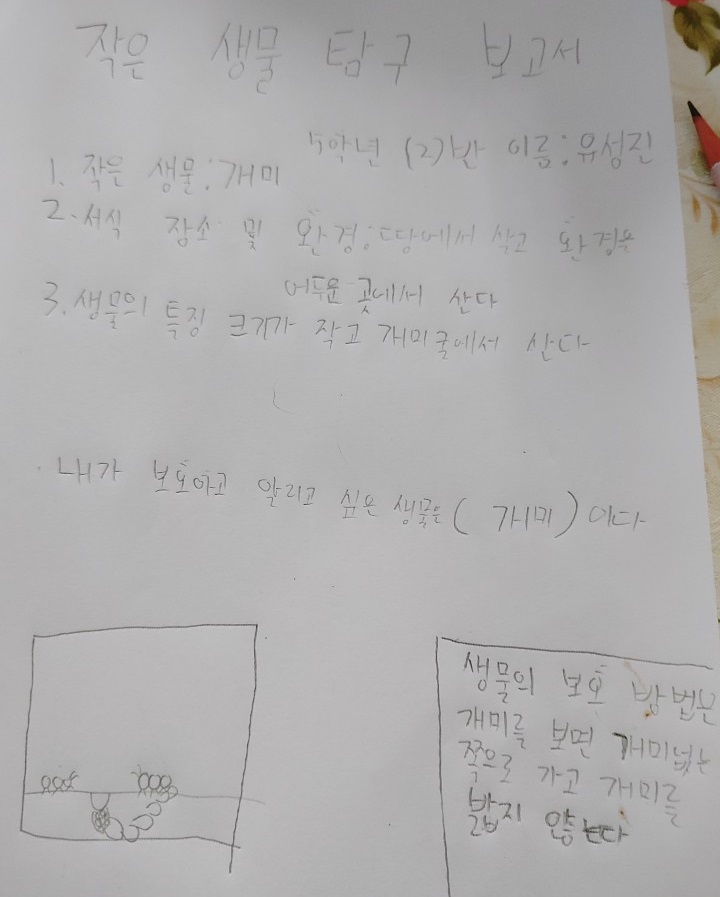 작은 생물 탐구 보고서
5학년 (2)반 이름:유성진
1. 작은 생물:개미
2. 서식 장소 및 환경:땅에서 살고 환경은
어두운 곳에서 산다
3. 생물의 특징 크기가 작고 개미굴에서 산다
내가 보호하고 알리고 싶은 생물은 (개미)이다
생물의 보호 방법은
개미를 보면 개미없는
쪽으로 가고 개미를
밟지 않는다